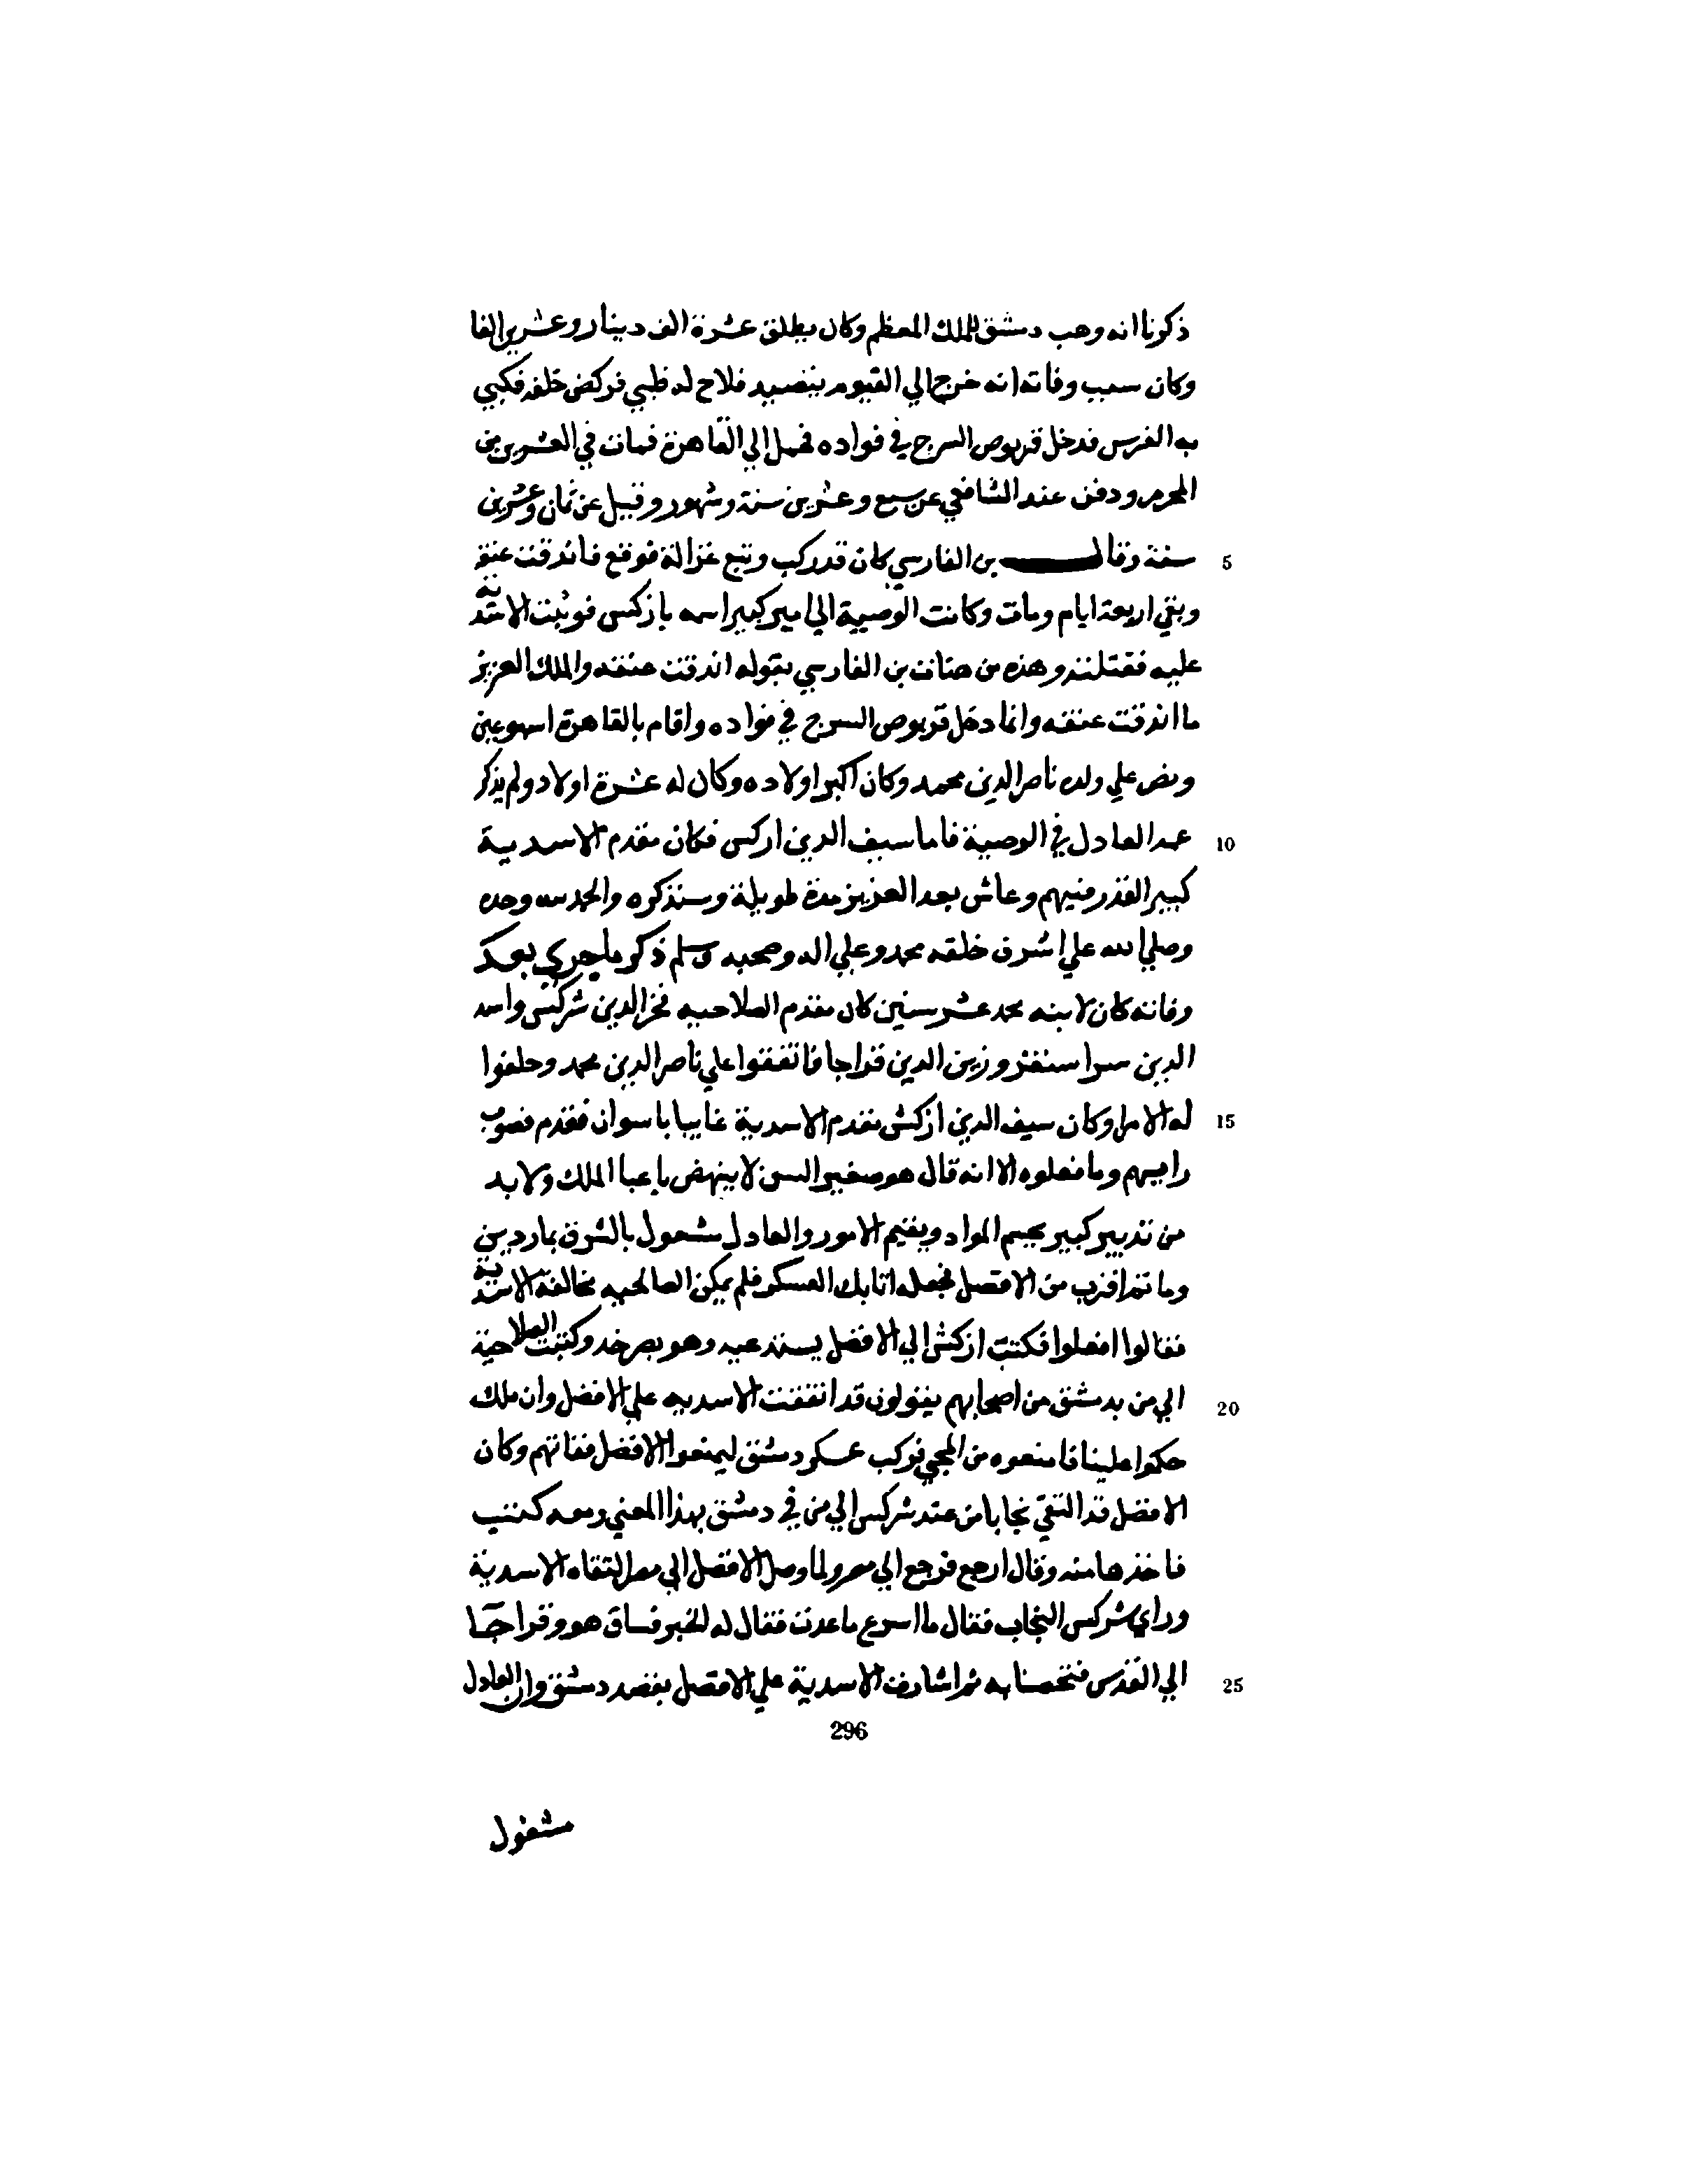 ذكرنا انه وهب دمشق للملك المعظم وكان يطلق عشرة الف دينار وعشرين الفا
وكان سبب وفاته انه خرج الي الفيوم يتصيد فلاح له ظبي فركض خلفه فكبي
به الفرس فدخل قربوص السرج في فواده فحمل الي القاهرة فمات في العشرين من
المحرم ودفن عند الشافعي عن سبع وعشرين سنة وشهور وقيل عن ثمان وعشرين
5 سنة وقال بن الفارسي كان قد ركب وتبع غزالة فوقع فاندقت عنقه
وبقي اربعة ايام ومات وكانت الوصية الي امير كبير اسمه يازكس فوثبت الاسدية
عليه فقتلته وهذه من هنات بن الفارسي بقوله اندقت عنقه والملك العزيز
ما اندقت عنقه وانما دخل قربوص السرج في فواده واقام بالقاهرة اسبوعين
ونص علي ولده ناصر الدين محمد وكان اكبر اولاده وكان له عشرة اولاد ولم يذكر
10 عمه العادل في الوصية فاما سيف الدين ازكس فكان مقدم الاسدية
كبير القدر فيهم وعاش بعد العزيز مدة طويلة وسنذكره والحمد لله وحده
وصلي الله علي اشرف خلقه محمد وعلي اله وصحبه وسلم ذكر ما جري بعد
وفاته كان لابنه محمد عشر سنين كان مقدم الصلاحيه فخر الدين شركس واسد
الدين سرا سنقر وزين الدين قراجا فاتفقوا علي ناصر الدين محمد وحلفوا
15 له الامرا وكان سيف الدين ازكش مقدم الاسدية غايبا باسوان فقدم فصوب
رايهم وما فعلوه الا انه قال هو صغير السن لا ينهض باعبا الملك ولا بد
من تدبير كبير يحسم المواد ويقيم الامور والعادل مشغول بالشرق بماردين
وما ثم اقرب من الافضل نجعله اتابك العسكر فلم يمكن الصالحيه مخالفة الاسدية
فقالوا افعلوا فكتب ازكش الي الافضل يستدعيه وهو بصرخد وكتبت الصلاحية
20 الي من بدمشق من اصحابهم يقولون قد اتفقت الاسديه علي الافضل وان ملك
حكموا علينا فامنعوه من المجي فركب عسكر دمشق ليمنعوا الافضل ففاتهم وكان
الافضل قد التقي نجابا من عند شركس الي من في دمشق بهذا المعني ومعه كتب
فاخذها منه وقال ارجع فرجع الي مصر ولما وصل الافضل الي مصر التقاه الاسدية
وراي شركس النجاب فقال ما اسرع ما عدت فقال له الخبر فساق هو وقراجا
25 الي القدس فتحصنا به ثم اشارت الاسدية علي الافضل بقصد دمشق وان العادل
296
مشغول